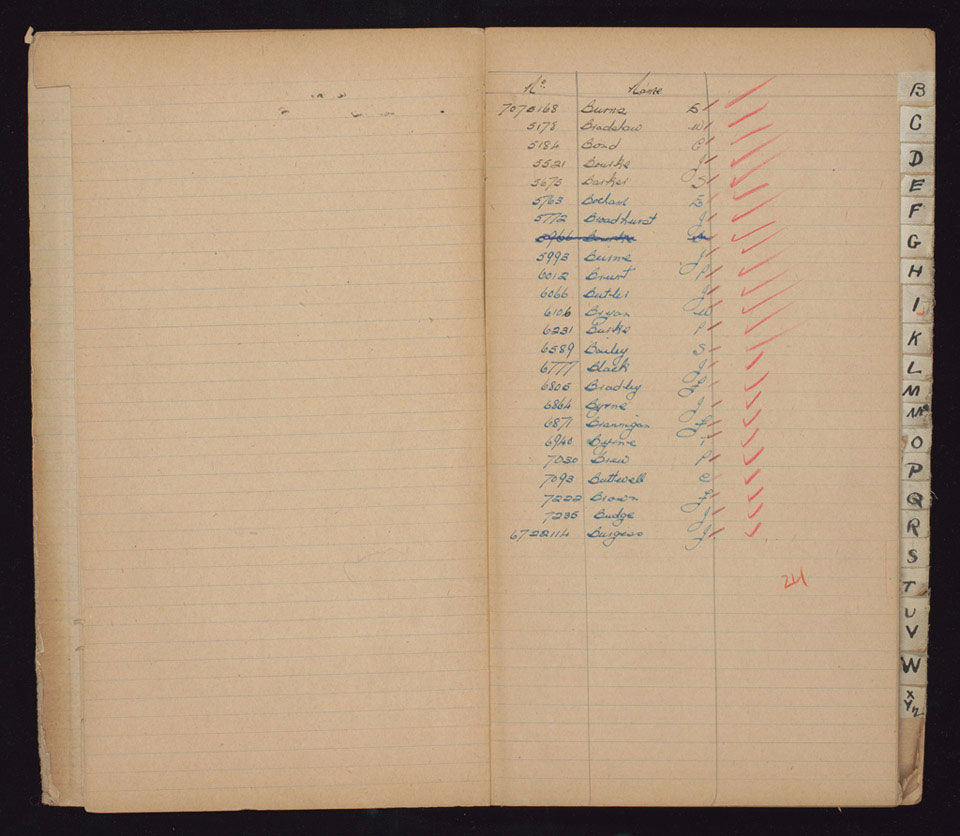 No. Name
7075168 Burns E
5178 Bradshaw W
5184 Bond C
5521 Bourke J
5675 Barker S
5763 Boland E
5772 Broadhurst J
5966
5993 Burns J
6012 P
6066 Butler J
6106 Bryan W
6231 Burke P
6589 Bailey S
6777 Black J
6805 Bradley
6864 Byrne J
6871 Brannigan
6940 Byrne T
7030 Brew P
7093 Buttwell C
7222 Brown
7235 Budge J
6722114 Burgess J
24
B
C
D
E
F
G
H
I
K
L
M
Mc
O
P
Q
R
S
T
U
V
W
X
Y Z